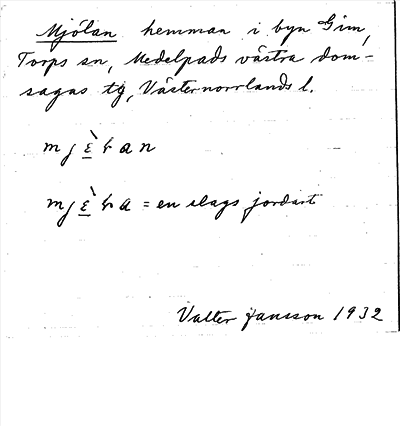 Mjölan hemman i byn Gim,
Torps sn, Medelpads västra dom-
sagas tg, Västernorrlands l.
mj ɛ̀ ɽ a n
mj ɛ̀ ɽ a = en slags jordart
Valter Jansson 1932